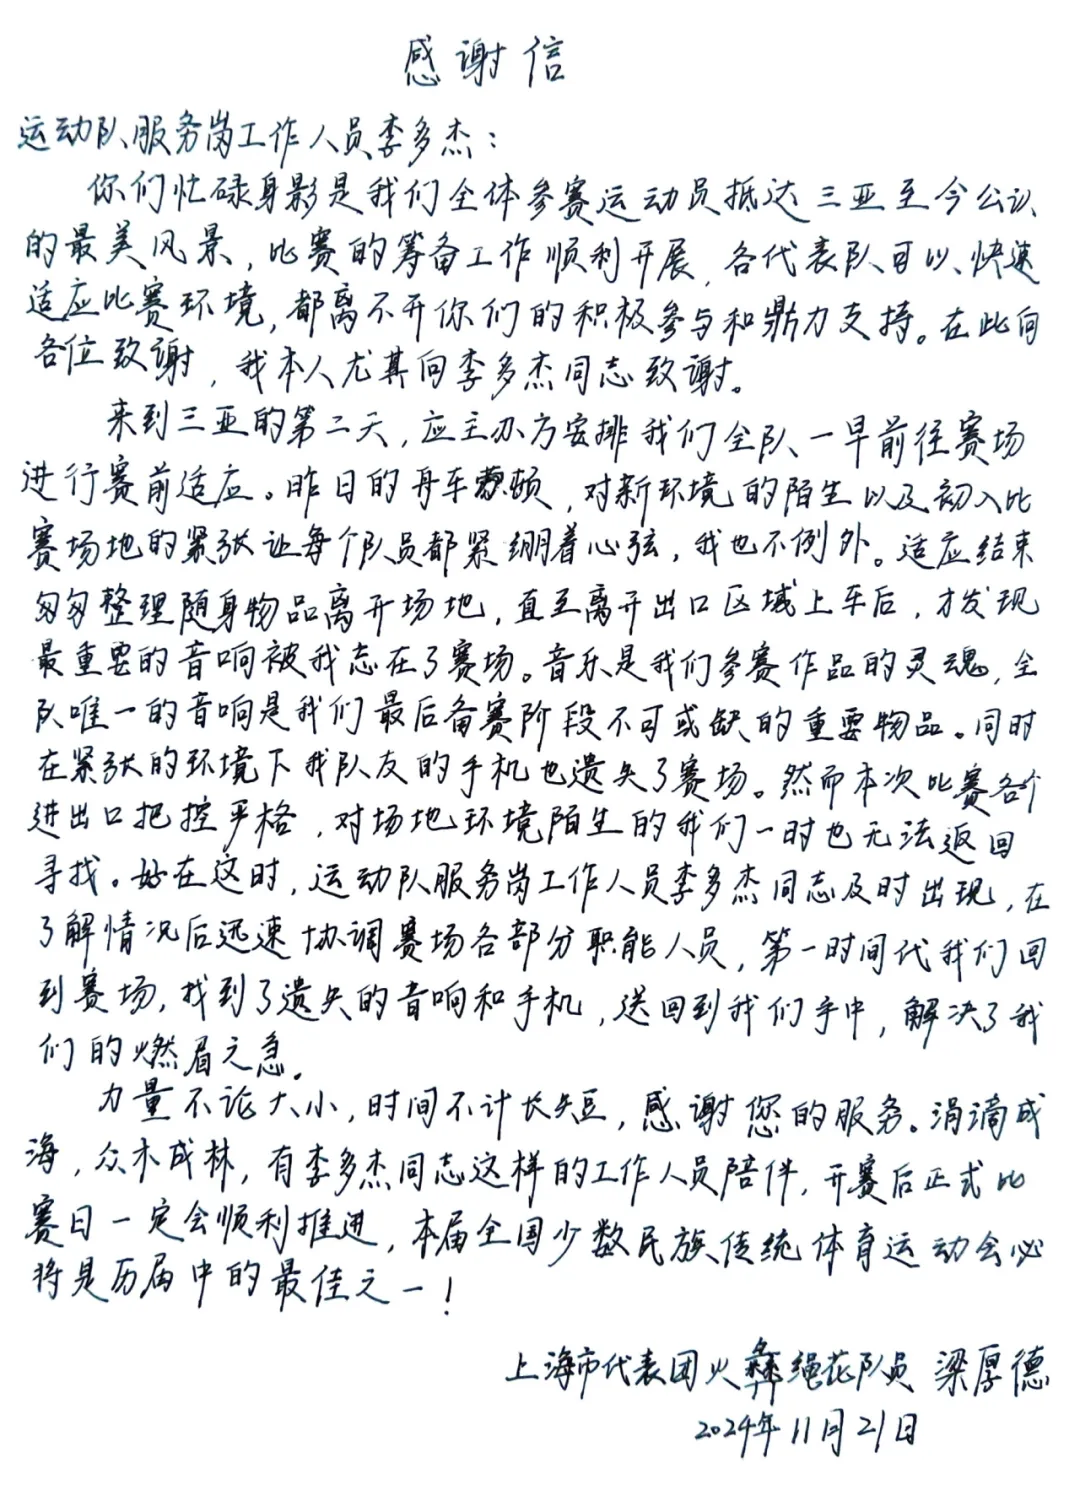 感谢信
运动队服务岗工作人员李多杰：
你们忙碌身影是我们全体参赛运动员抵达三亚至今公认
的最美风景，比赛的筹备工作顺利开展，各代表队可以快速
适应比赛环境，都离不开你们的积极参与和鼎力支持。在此向
各位致谢，我本人尤其向李多杰同志致谢。
来到三亚的第二天，应主办方安排我们全队一早前往赛场
进行赛前适应。昨日的舟车劳顿，对新环境的陌生以及初入比
赛场地的紧张让每个队员都紧绷着心弦，我也不例外。适应结束
匆匆整理随身物品离开场地，直至离开出口区域上车后，才发现
最重要的音响被我忘在了赛场。音乐是我们参赛作品的灵魂，全
队唯一的音响是我们最后备赛阶段不可或缺的重要物品。同时
在紧张的环境下我队友的手机也遗失了赛场。然而本次比赛各个
进出口把控严格，对场地环境陌生的我们一时也无法返回
寻找。好在这时，运动队服务岗工作人员李多杰同志及时出现，在
了解情况后迅速协调赛场各部分职能人员，第一时间代我们回
到赛场，找到了遗失的音响和手机，送回到我们手中，解决了我
们的燃眉之急。
力量不论大小，时间不计长短，感谢您的服务。涓滴成
海，众木成林，有李多杰同志这样的工作人员陪伴，开赛后正式比
赛日一定会顺利推进，本届全国少数民族传统体育运动会必
将是历届中的最佳之一！
上海市代表团火彝绳花队员 梁厚德
2024年11月21日